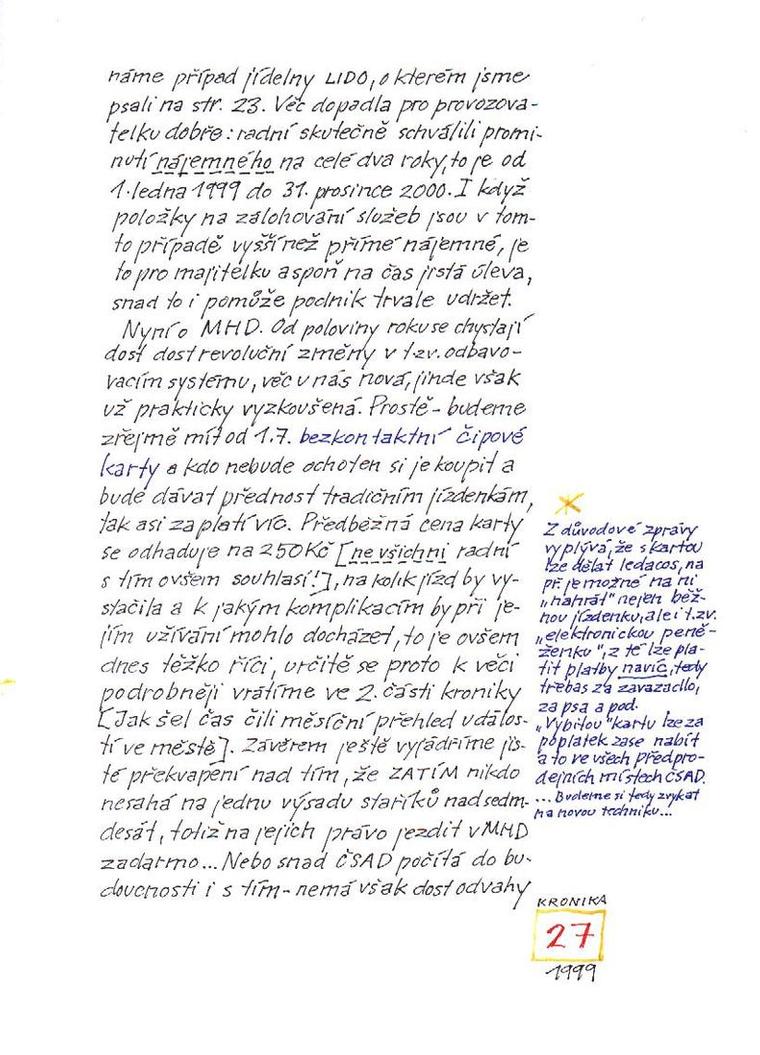 náme případ jídelny LIDO, o kterém jsme
psali na str. 23. Věc dopadla pro provozova-
telku dobře: radní skutečně schválili promi-
nutí nájemného na celé dva roky, to je od
1. ledna 1999 do 31. prosince 2000. I když
položky na zálohování služeb jsou v tom-
to případě vyšší než přímé nájemné, je
to pro majitelku aspoň na čas jistá úleva,
snad to i pomůže podnik trvale udržet.
Nyní o MHD. Od poloviny roku se chystají
dost dost revoluční změny v t.zv. odbavo-
vacím systému, věc u nás nová, jinde však
už prakticky vyzkoušená. Prostě - budeme
zřejmě mít od 1.7. bezkontaktní čipové
karty a kdo nebude ochoten si je koupit a
bude dávat přednost tradičním jízdenkám,
tak asi zaplatí víc. Předběžná cena karty
se odhaduje na 250 Kč [ne všichni radní
s tím ovšem souhlasí!], na kolik jízd by vy-
stačila a k jakým komplikacím by při je-
jím užívání mohlo docházet, to je ovšem
dnes těžko říci, určitě se proto k věci
podrobněji vrátíme ve 2. části kroniky
[Jak šel čas čili měsíční přehled událos-
tí ve městě]. Závěrem ještě vyjádříme jis-
té překvapení nad tím, že ZATÍM nikdo
nesahá na jednu výsadu staříků nad sedm-
desát, totiž na jejich právo jezdit v MHD
zadarmo... Nebo snad ČSAD počítá do bu-
doucnosti i s tím - nemá však dost odvahy
Z důvodové zprávy
vyplývá, že s kartou
lze dělat ledacos, na
př. je možné na ni
„nahrát" nejen běž-
nou jízdenku, ale i t.zv.
„elektronickou peně-
ženku", z té lze pla-
tit platby navíc, tedy
třebas za zavazadlo,
za psa a pod.
„Vybitou" kartu lze za
poplatek zase nabít
a to ve všech předpro-
dejních místech ČSAD.
... Budeme si tedy zvykat
na novou techniku...
KRONIKA
27
1999